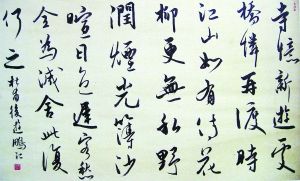 寺憶新遊處
橋憐再渡時
江山如有待花
柳更無私野
潤煙光薄沙
暄日色遲客愁
全為減舍此復
何之
杜甫後遊